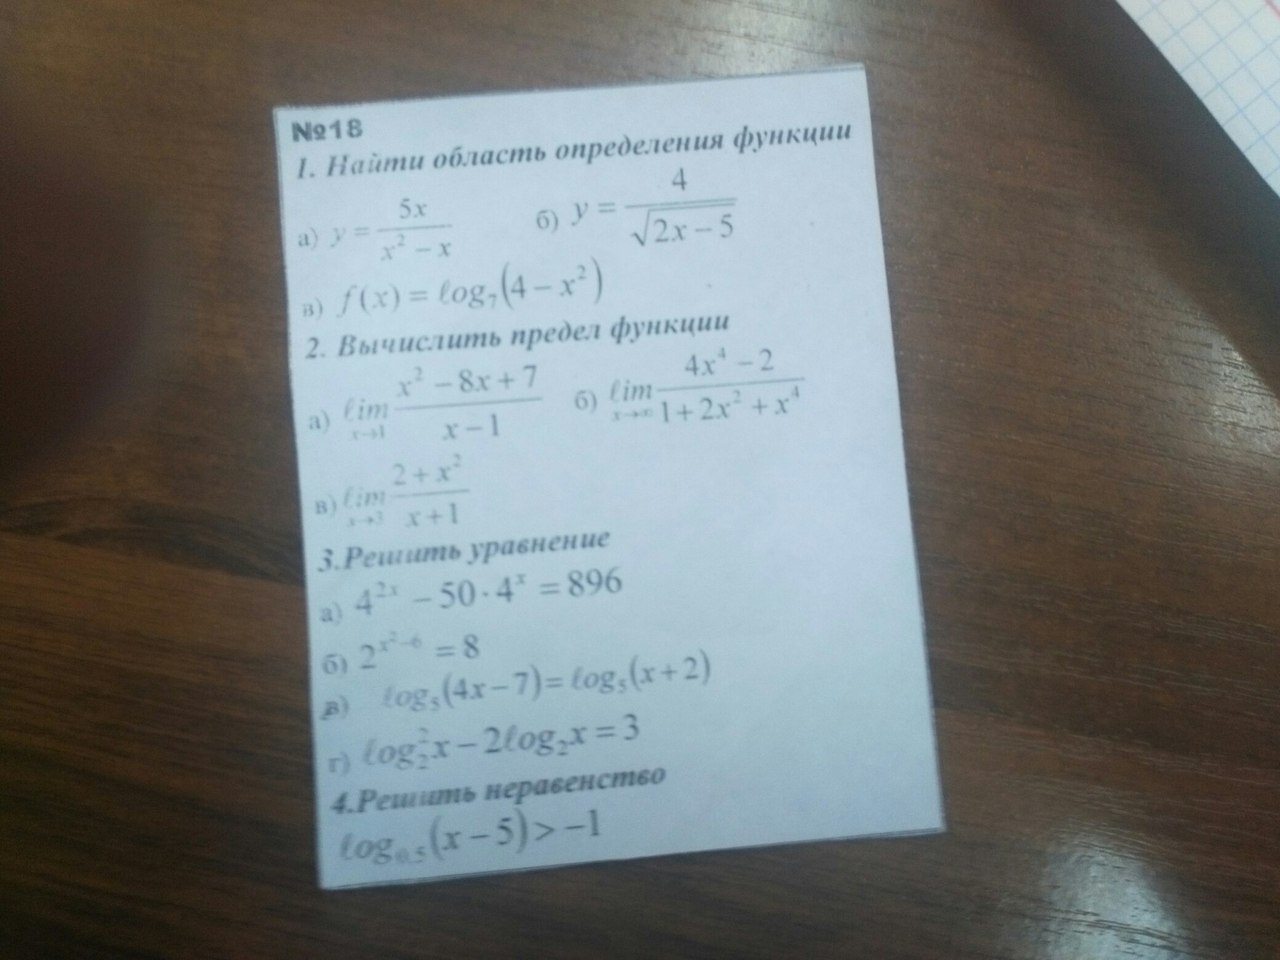 №18
1. Найти область определения функции
а) y = 5x / (x² − x) б) y = 4 / √(2x − 5)
в) f(x) = ℓog₇(4 − x²)
2. Вычислить предел функции
а) ℓim x→1 (x² − 8x + 7) / (x − 1) б) ℓim x→∞ (4x⁴ − 2) / (1 + 2x² + x⁴)
в) ℓim x→3 (2 + x²) / (x + 1)
3.Решить уравнение
а) 4²ˣ − 50 · 4ˣ = 896
б) 2^(x²−6) = 8
в) ℓog₅(4x − 7) = ℓog₅(x + 2)
г) ℓog₂²x − 2ℓog₂x = 3
4.Решить неравенство
ℓog₀,₅(x − 5) > −1